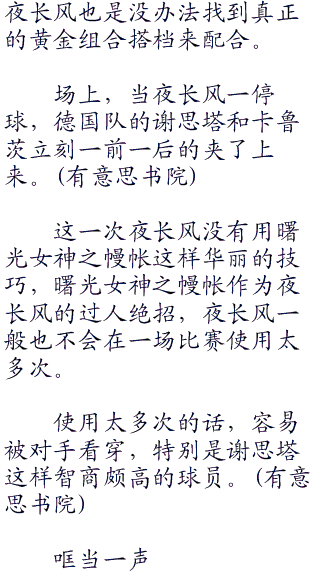 夜长风也是没办法找到真正
的黄金组合搭档来配合。
场上，当夜长风一停
球，德国队的谢思塔和卡鲁
茨立刻一前一后的夹了上
来。(有意思书院)
这一次夜长风没有用曙
光女神之幔帐这样华丽的技
巧，曙光女神之幔帐作为夜
长风的过人绝招，夜长风一
般也不会在一场比赛使用太
多次。
使用太多次的话，容易
被对手看穿，特别是谢思塔
这样智商颇高的球员。(有意
思书院)
哐当一声